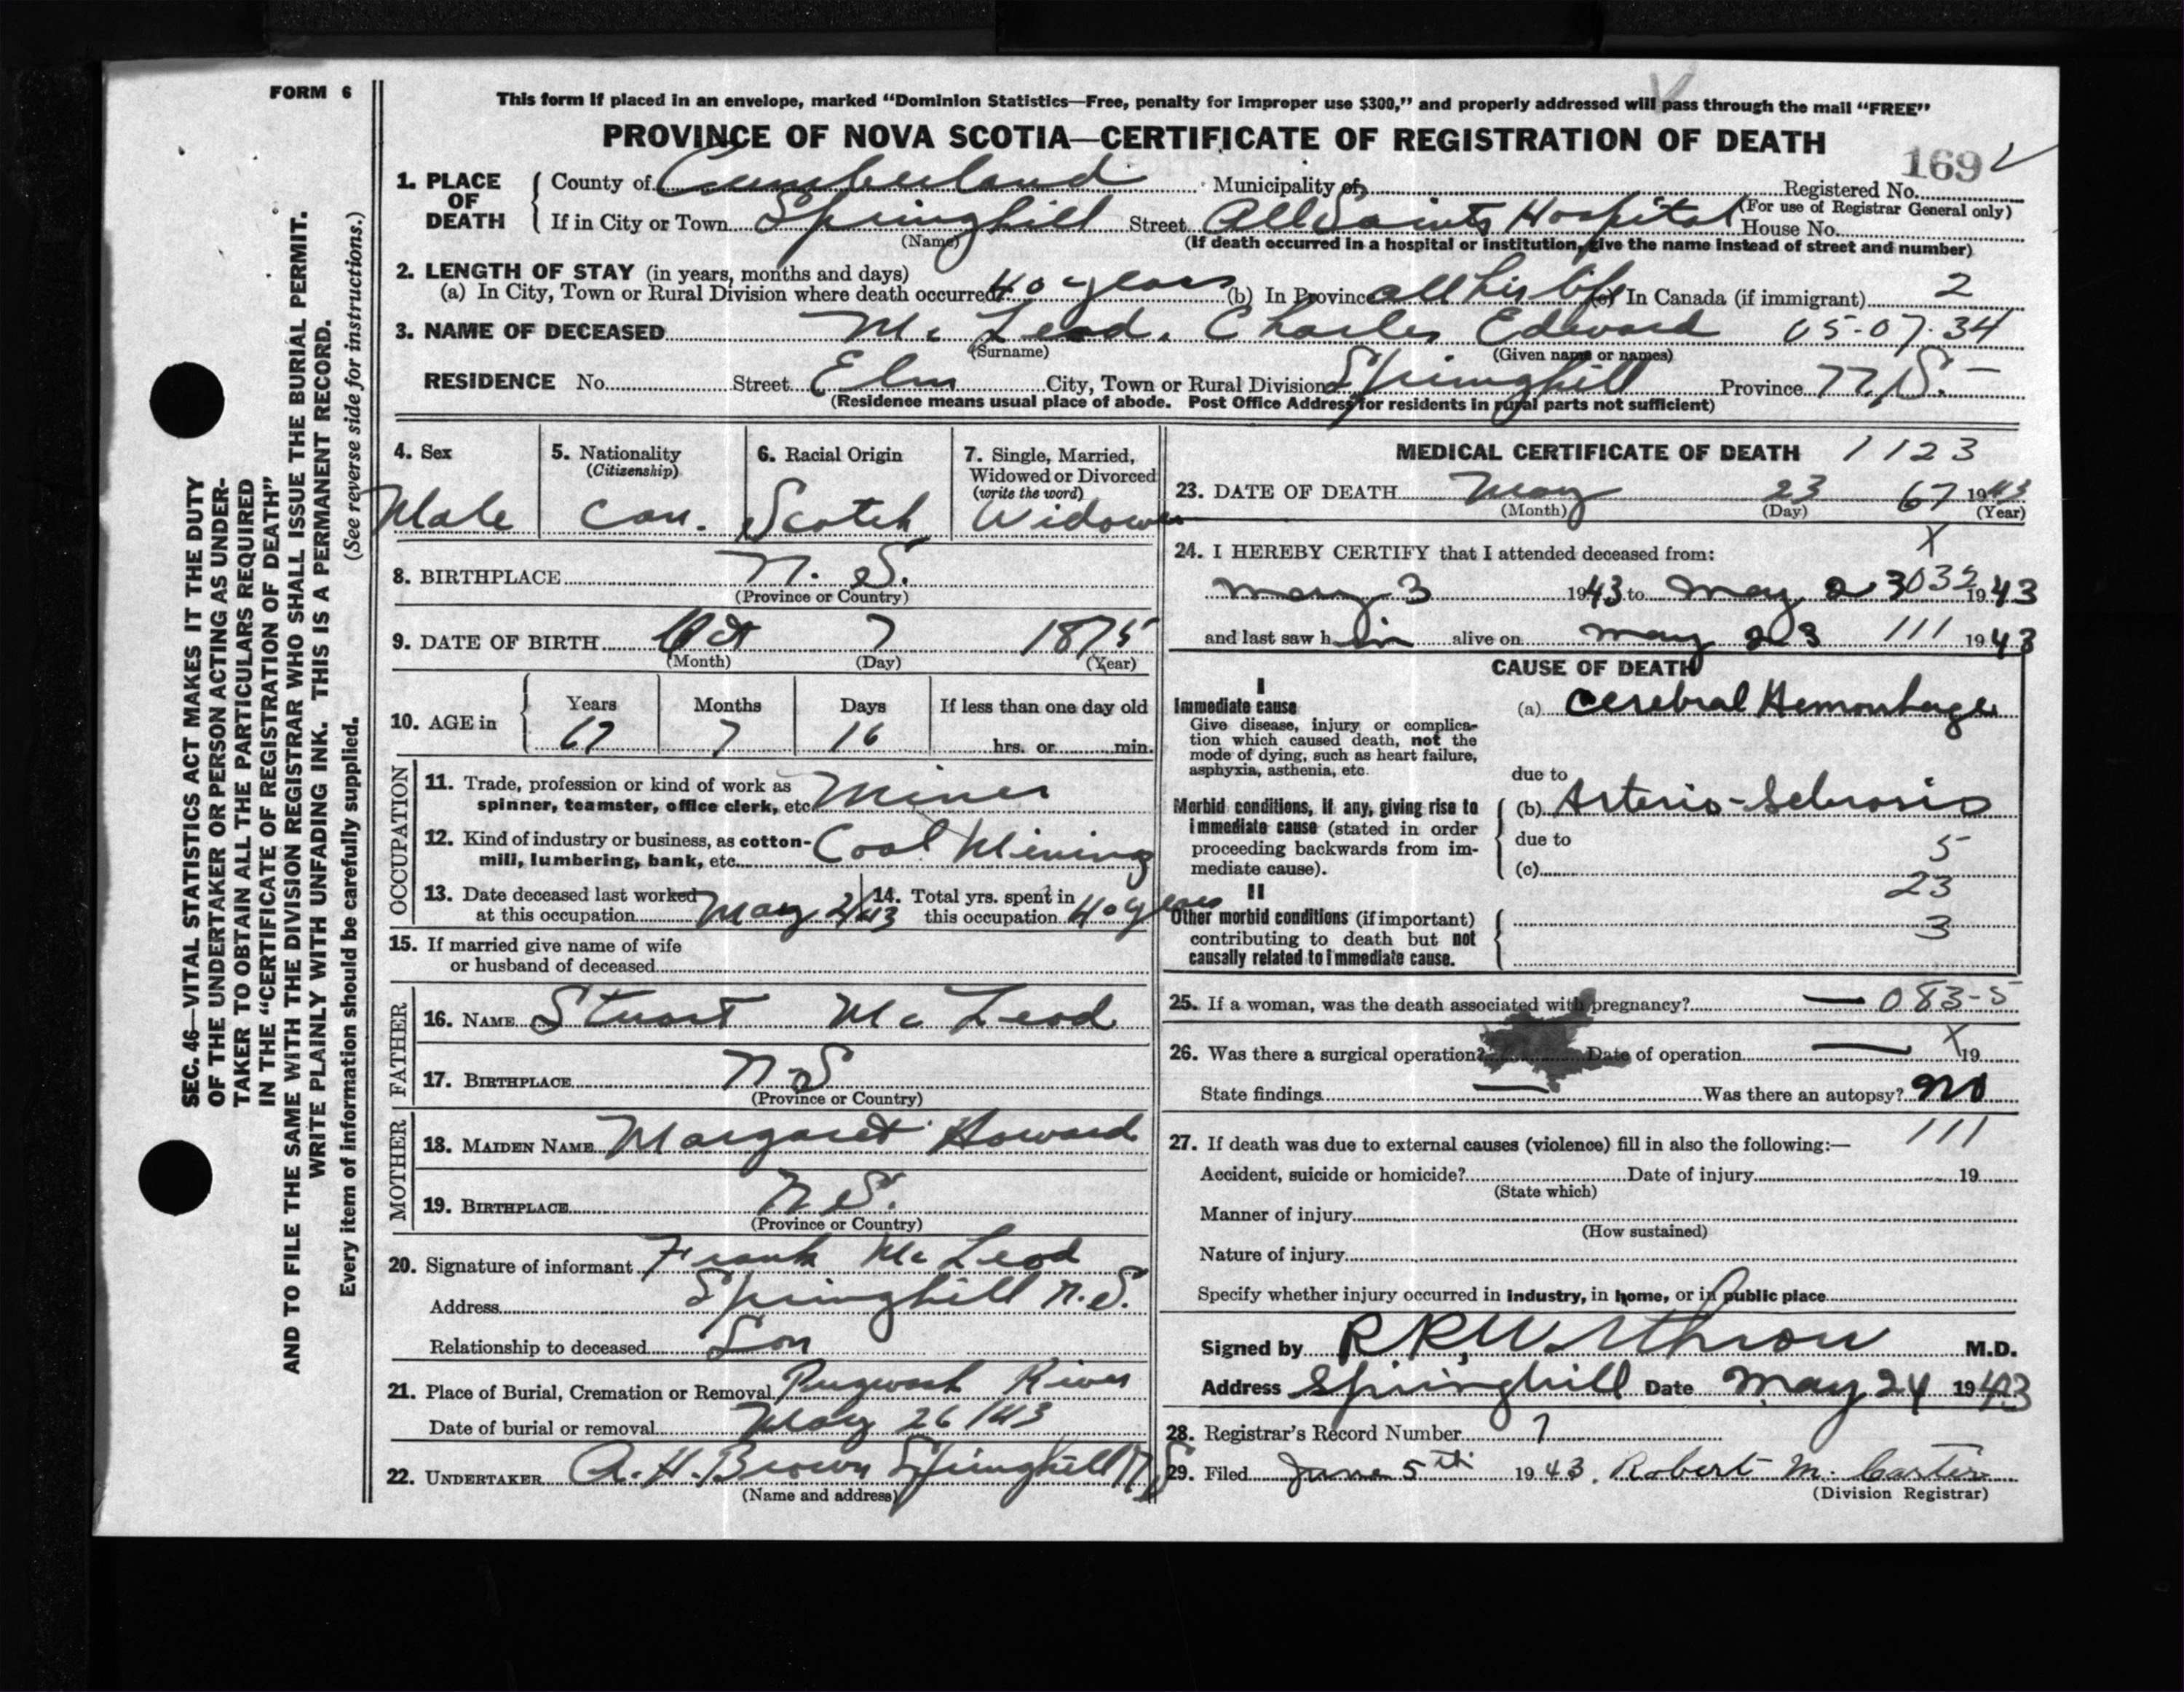 FORM 6
This form if placed in an envelope, marked “Dominion Statistics—Free, penalty for improper use $300,” and properly addressed will pass through the mail “FREE”
PROVINCE OF NOVA SCOTIA—CERTIFICATE OF REGISTRATION OF DEATH
169
1. PLACE OF DEATH
County of Cumberland Municipality of Registered No.
(For use of Registrar General only)
If in City or Town Springhill Street All Saints Hospital House No.
(Name) (If death occurred in a hospital or institution, give the name instead of street and number)
2. LENGTH OF STAY (in years, months and days)
(a) In City, Town or Rural Division where death occurred 40 years (b) In Province all his life (c) In Canada (if immigrant) 2
3. NAME OF DECEASED Mc Leod, Charles Edward 05-07-34
(Surname) (Given name or names)
RESIDENCE No. Street Elm City, Town or Rural Division Springhill Province N.S. -
(Residence means usual place of abode. Post Office Address for residents in rural parts not sufficient)
4. Sex Male
5. Nationality (Citizenship) Can.
6. Racial Origin Scotch
7. Single, Married, Widowed or Divorced (write the word) Widower
8. BIRTHPLACE N. S.
(Province or Country)
9. DATE OF BIRTH Oct 7 1875
(Month) (Day) (Year)
10. AGE in Years 67 Months 7 Days 16 If less than one day old hrs. or min.
OCCUPATION
11. Trade, profession or kind of work as spinner, teamster, office clerk, etc. Miner
12. Kind of industry or business, as cotton-mill, lumbering, bank, etc. Coal Mining
13. Date deceased last worked at this occupation May 2/43
14. Total yrs. spent in this occupation 40 years
15. If married give name of wife or husband of deceased
FATHER
16. NAME Stuart Mc Leod
17. BIRTHPLACE N S
(Province or Country)
MOTHER
18. MAIDEN NAME Margaret Howard
19. BIRTHPLACE N S.
(Province or Country)
20. Signature of informant Frank Mc Leod
Address Springhill N.S.
Relationship to deceased Son
21. Place of Burial, Cremation or Removal Pugwash River
Date of burial or removal May 26/43
22. UNDERTAKER A. H. Brown Springhill N S
(Name and address)
MEDICAL CERTIFICATE OF DEATH 1123
23. DATE OF DEATH May 23 67 1943
(Month) (Day) (Year)
24. I HEREBY CERTIFY that I attended deceased from: X
May 3 1943 to May 23 1943
and last saw him alive on May 23 111 1943
CAUSE OF DEATH
I
Immediate cause
Give disease, injury or complication which caused death, not the mode of dying, such as heart failure, asphyxia, asthenia, etc.
(a) Cerebral Hemorrhage
due to
Morbid conditions, if any, giving rise to immediate cause (stated in order proceeding backwards from immediate cause).
(b) Arterio-Sclerosis
due to 5
(c)
23
II
Other morbid conditions (if important) contributing to death but not causally related to immediate cause.
3
25. If a woman, was the death associated with pregnancy? — 083-5
26. Was there a surgical operation? Date of operation — X 19
State findings — Was there an autopsy? no
27. If death was due to external causes (violence) fill in also the following:— 111
Accident, suicide or homicide? Date of injury 19
(State which)
Manner of injury
(How sustained)
Nature of injury
Specify whether injury occurred in industry, in home, or in public place
Signed by M.D.
Address Springhill Date May 24 1943
28. Registrar's Record Number 7
29. Filed June 5th 1943. Robert M. Carter
(Division Registrar)
SEC. 46—VITAL STATISTICS ACT MAKES IT THE DUTY
OF THE UNDERTAKER OR PERSON ACTING AS UNDER-
TAKER TO OBTAIN ALL THE PARTICULARS REQUIRED
IN THE “CERTIFICATE OF REGISTRATION OF DEATH”
AND TO FILE THE SAME WITH THE DIVISION REGISTRAR WHO SHALL ISSUE THE BURIAL PERMIT.
WRITE PLAINLY WITH UNFADING INK. THIS IS A PERMANENT RECORD.
Every item of information should be carefully supplied. (See reverse side for instructions.)